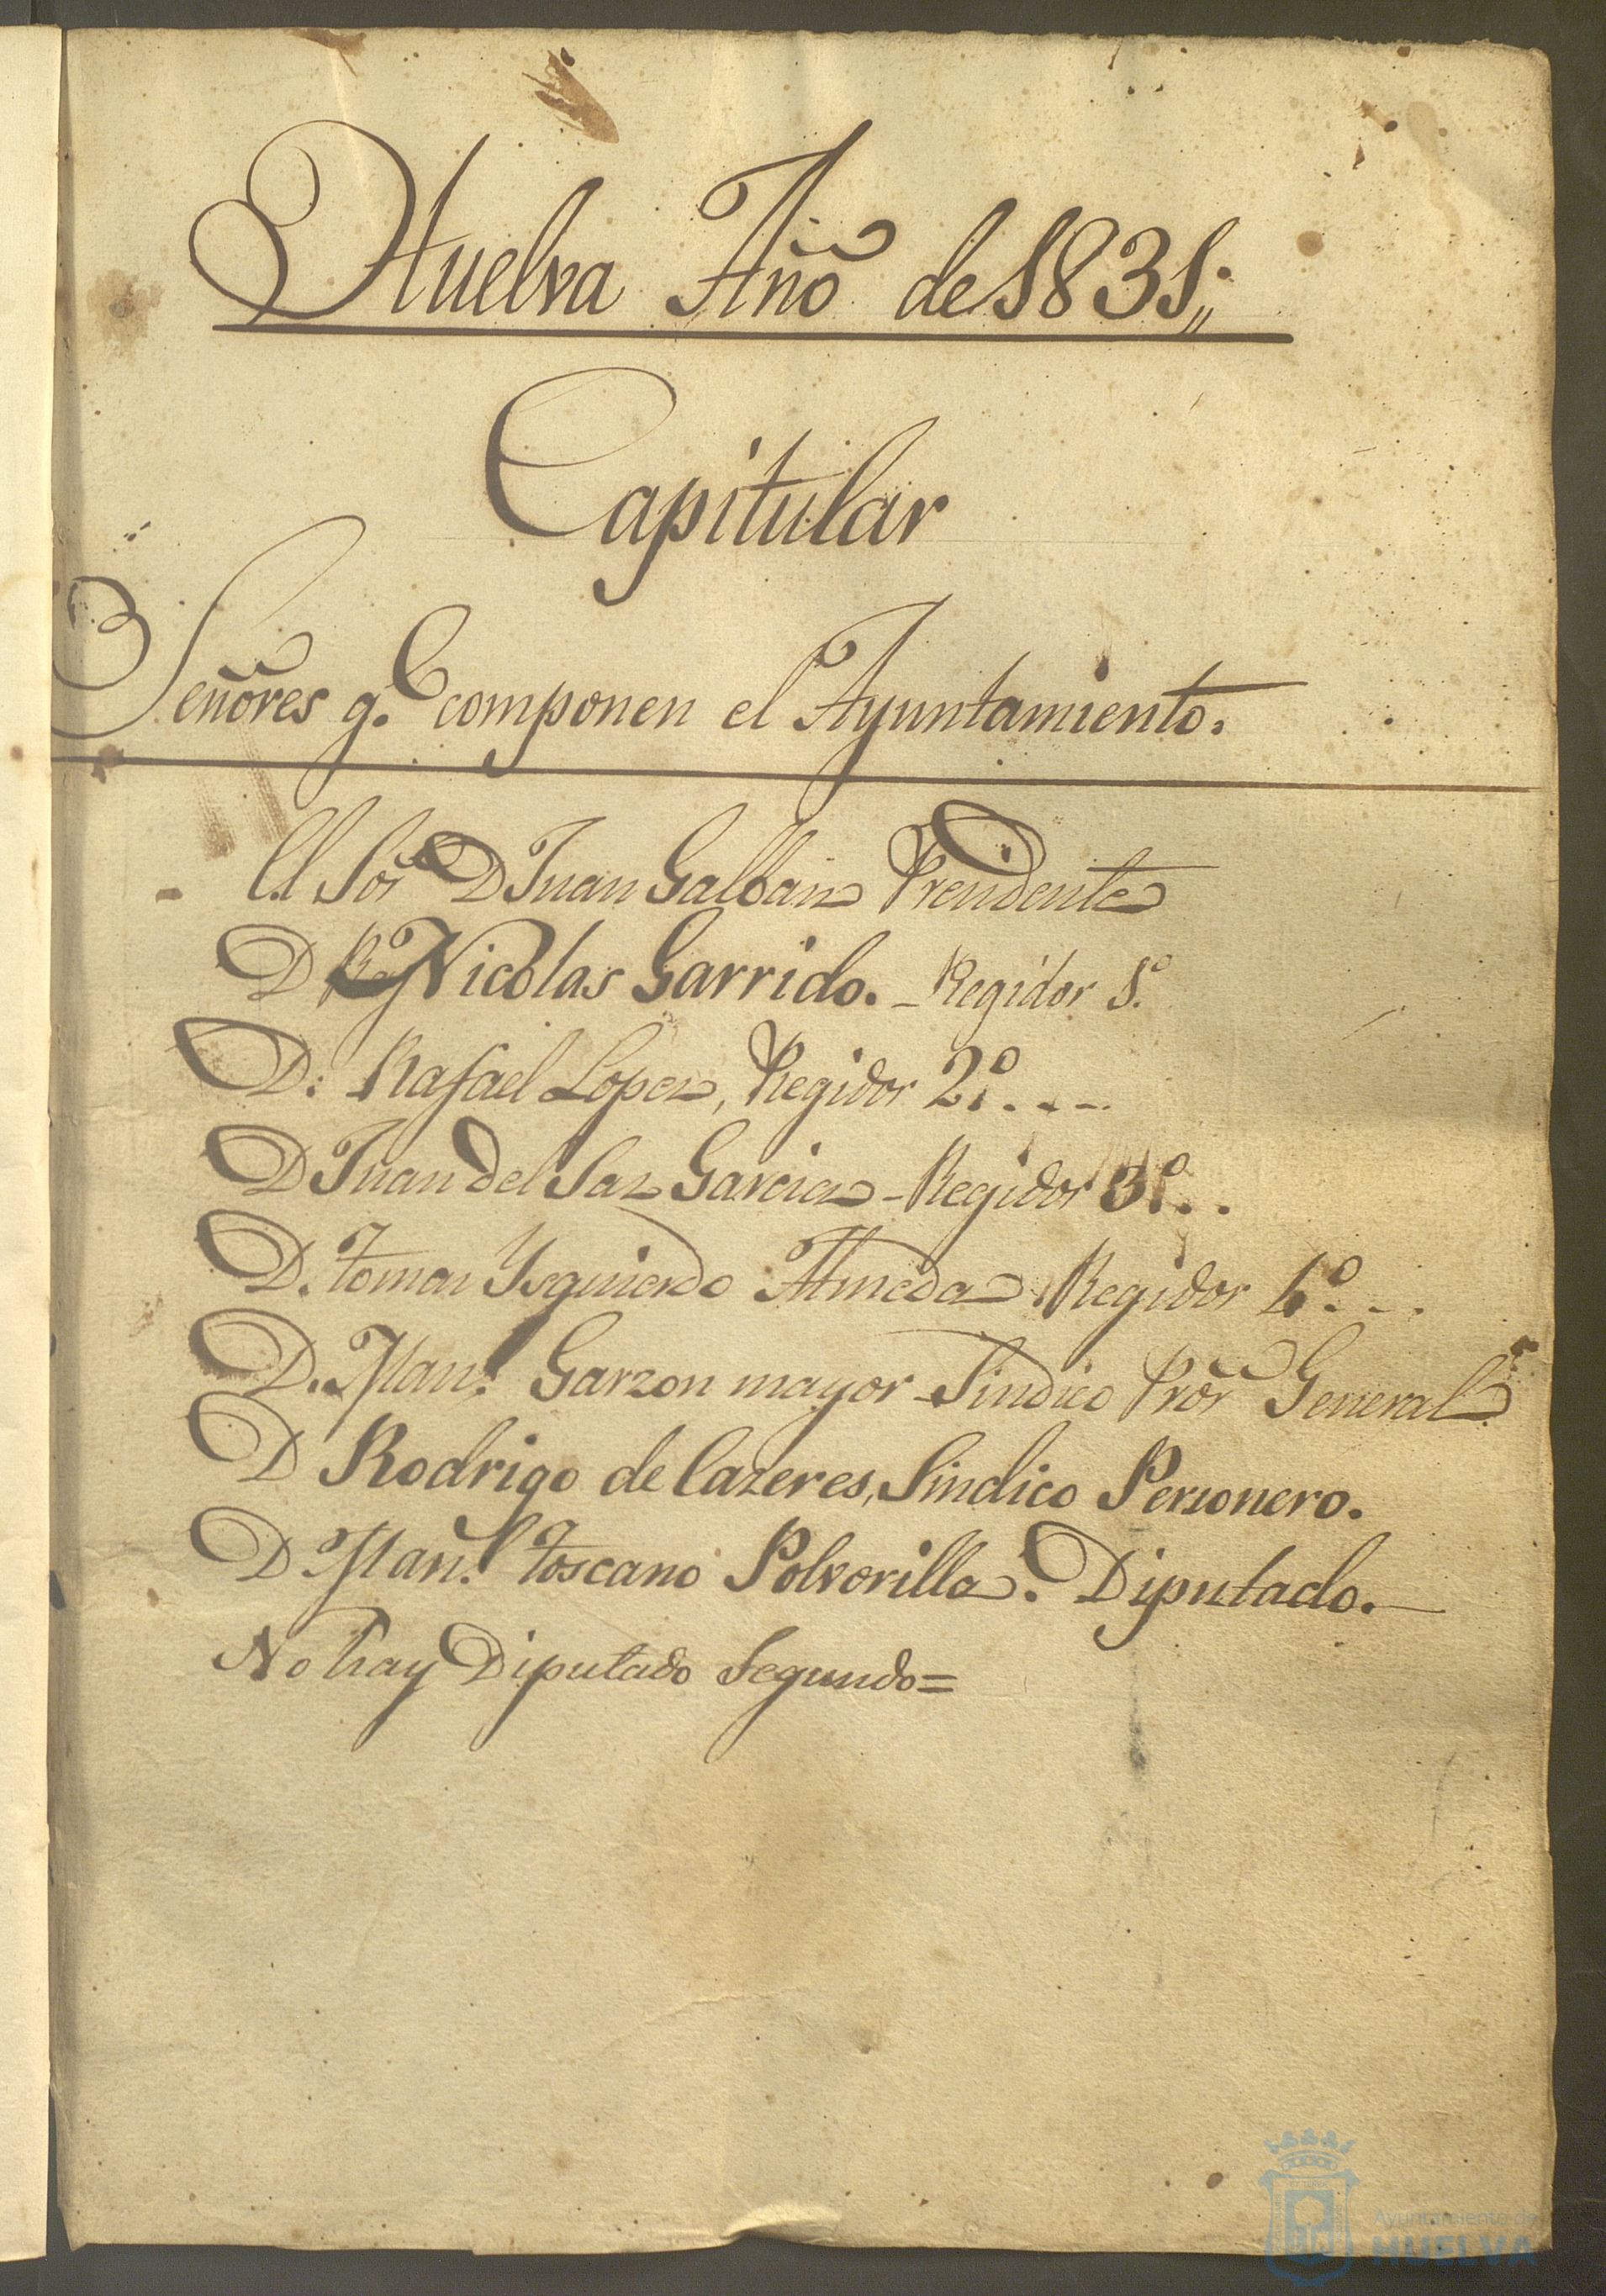 Huelva Año de 1831,,
Capitular
Señores q.e componen el Ayuntamiento.
El Sor D Juan Galban Presidente
D Nicolas Garrido. - Regidor 1.º
D. Rafael Lopez, Regidor 2.º . - -
D Juan del Saz Garcia - Regidor 3.º . .
D. tomas Ysquierdo Almeda Regidor 4.º - - .
D. Man.l Garzon mayor - Sindico Pror General
D Rodrigo de Cazeres, Sindico Personero.
D Man.l toscano Polvorilla. Diputado. -
No hay Diputado Segundo =
Ayuntamiento de
HUELVA